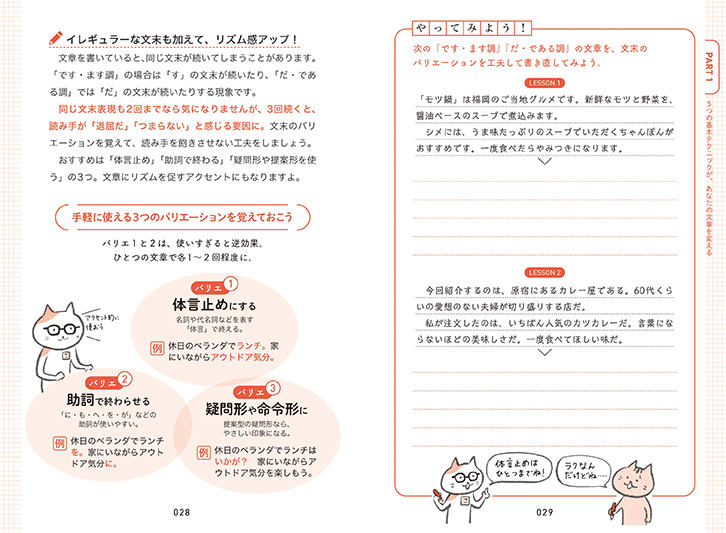 イレギュラーな文末も加えて、リズム感アップ！
文章を書いていると、同じ文末が続いてしまうことがあります。
「です・ます調」の場合は「す」の文末が続いたり、「だ・であ
る調」では「だ」の文末が続いたりする現象です。
同じ文末表現も2回までなら気になりませんが、3回続くと、
読み手が「退屈だ」「つまらない」と感じる要因に。文末のバリ
エーションを覚えて、読み手を飽きさせない工夫をしましょう。
おすすめは「体言止め」「助詞で終わる」「疑問形や提案形を使
う」の3つ。文章にリズムを促すアクセントにもなりますよ。
手軽に使える3つのバリエーションを覚えておこう
バリエ1と2は、使いすぎると逆効果。
ひとつの文章で各1～2回程度に。
バリエ1
体言止めにする
名詞や代名詞などを表す
「体言」で終える。
例 休日のベランダでランチ。家
にいながらアウトドア気分。
アクセント的に
使おう
バリエ2
助詞で終わらせる
「に・も・へ・を・が」などの
助詞が使いやすい。
例 休日のベランダでランチ
を。家にいながらアウト
ドア気分に。
バリエ3
疑問形や命令形に
提案型の疑問形なら、
やさしい印象になる。
例 休日のベランダでランチは
いかが？　家にいながらア
ウトドア気分を楽しもう。
028
やってみよう！
次の「です・ます調」「だ・である調」の文章を、文末の
バリエーションを工夫して書き直してみよう。
LESSON 1
「モツ鍋」は福岡のご当地グルメです。新鮮なモツと野菜を、
醤油ベースのスープで煮込みます。
シメには、うま味たっぷりのスープでいただくちゃんぽんが
おすすめです。一度食べたらやみつきになります。
LESSON 2
今回紹介するのは、原宿にあるカレー屋である。60代くら
いの愛想のない夫婦が切り盛りする店だ。
私が注文したのは、いちばん人気のカツカレーだ。言葉にな
らないほどの美味しさだ。一度食べてほしい味だ。
体言止めは
ひとつまでね！
ラクなん
だけどね……
029
PART 1
5つの基本テクニックが、あなたの文章を変える